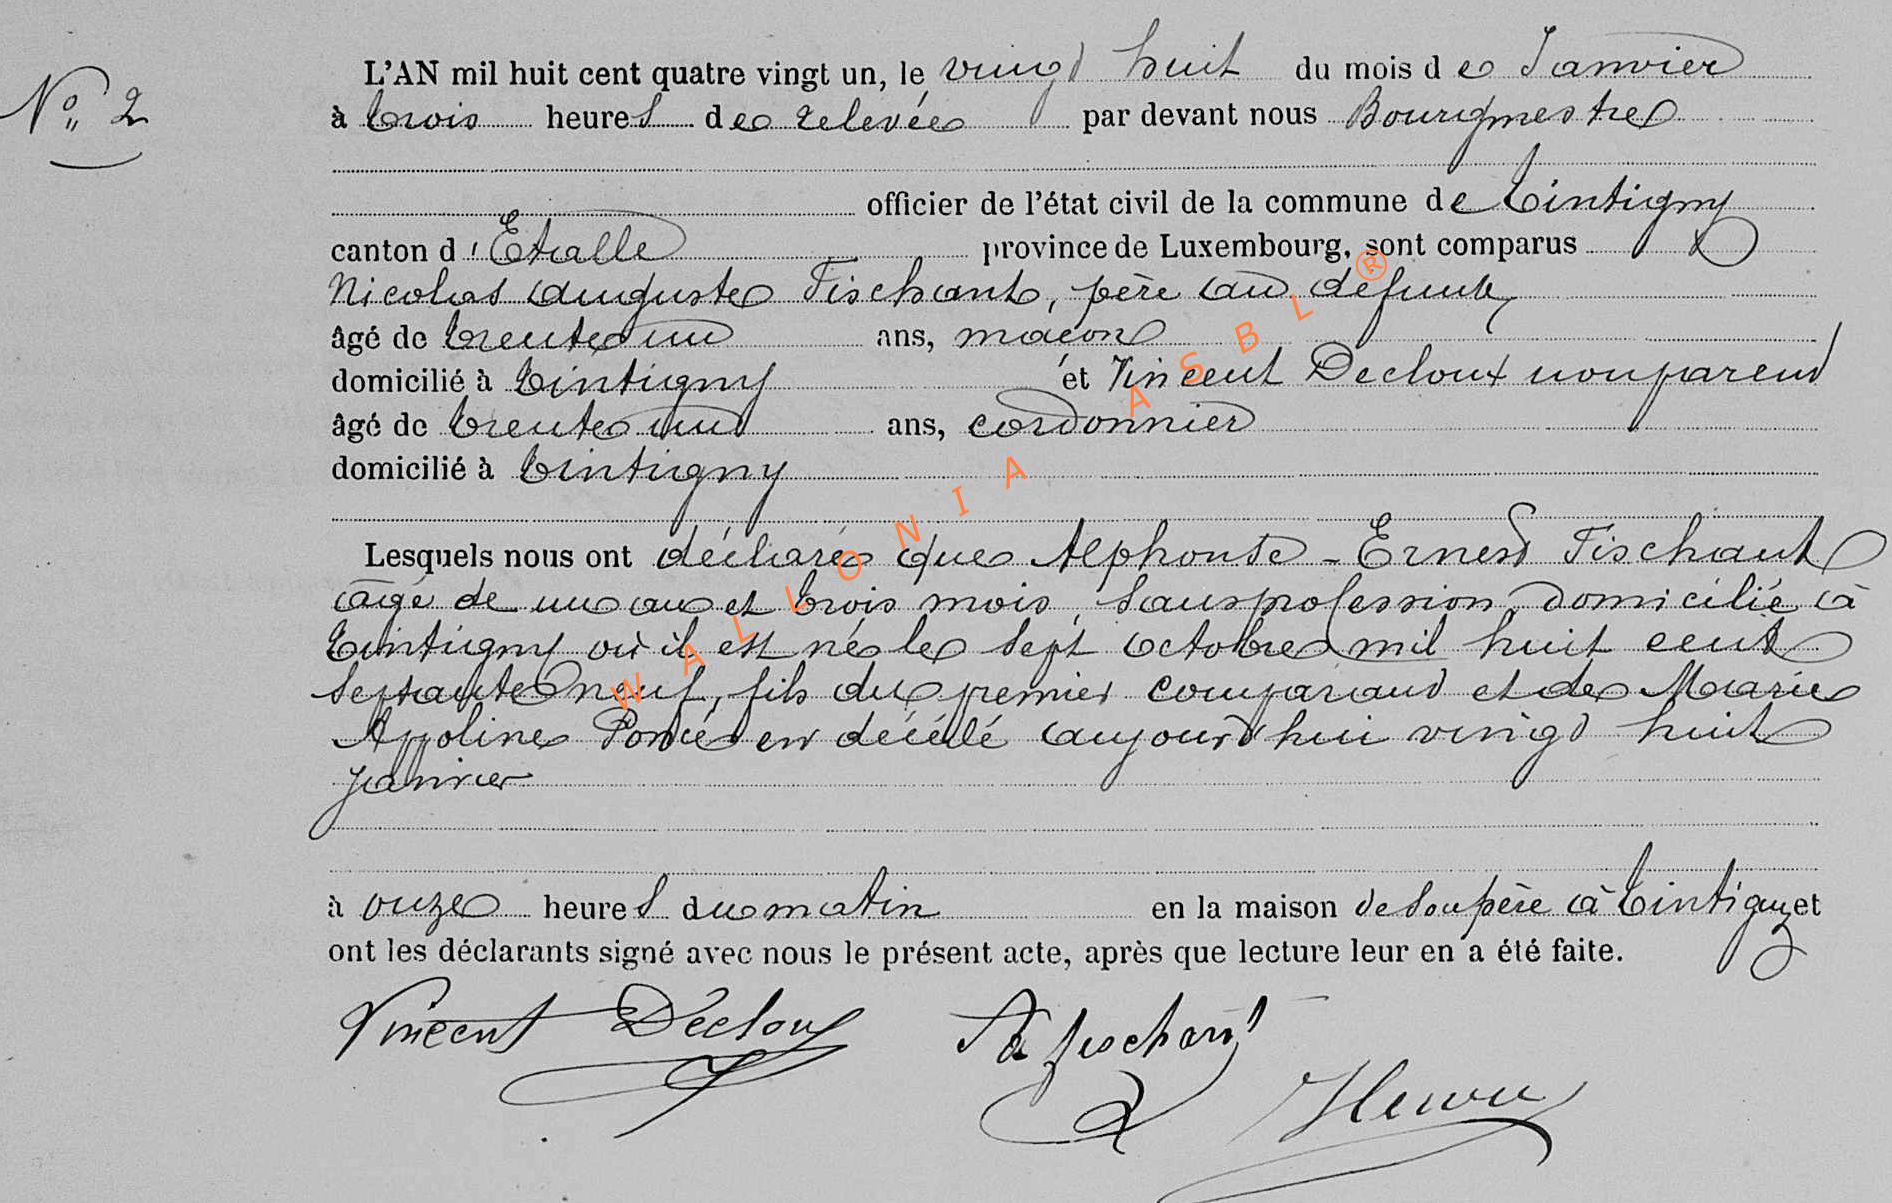 L'AN mil huit cent quatre vingt un, le vingt huit du mois de Janvier
No 2
à trois heures de relevée par devant nous Bourgmestre
officier de l'état civil de la commune de Tintigny
canton d'Etalle province de Luxembourg, sont comparus
Nicolas Auguste Fischant, père au défunt,
âgé de trente un ans, maçon
domicilié à Tintigny et Vincent Decloux non parent
âgé de trente un ans, cordonnier
domicilié à Tintigny
Lesquels nous ont déclaré que Alphonse-Ernest Fischant
âgé de un an et trois mois, sans profession, domicilié à
Tintigny où il est né le sept octobre mil huit cent
septante neuf, fils du premier comparant et de Marie
Appoline Poncé est décédé aujourd'hui vingt huit
janvier
à onze heures du matin en la maison de son père à Tintigny et
ont les déclarants signé avec nous le présent acte, après que lecture leur en a été faite.
Vincent Décloux fischant
WALLONIA ASBL ®